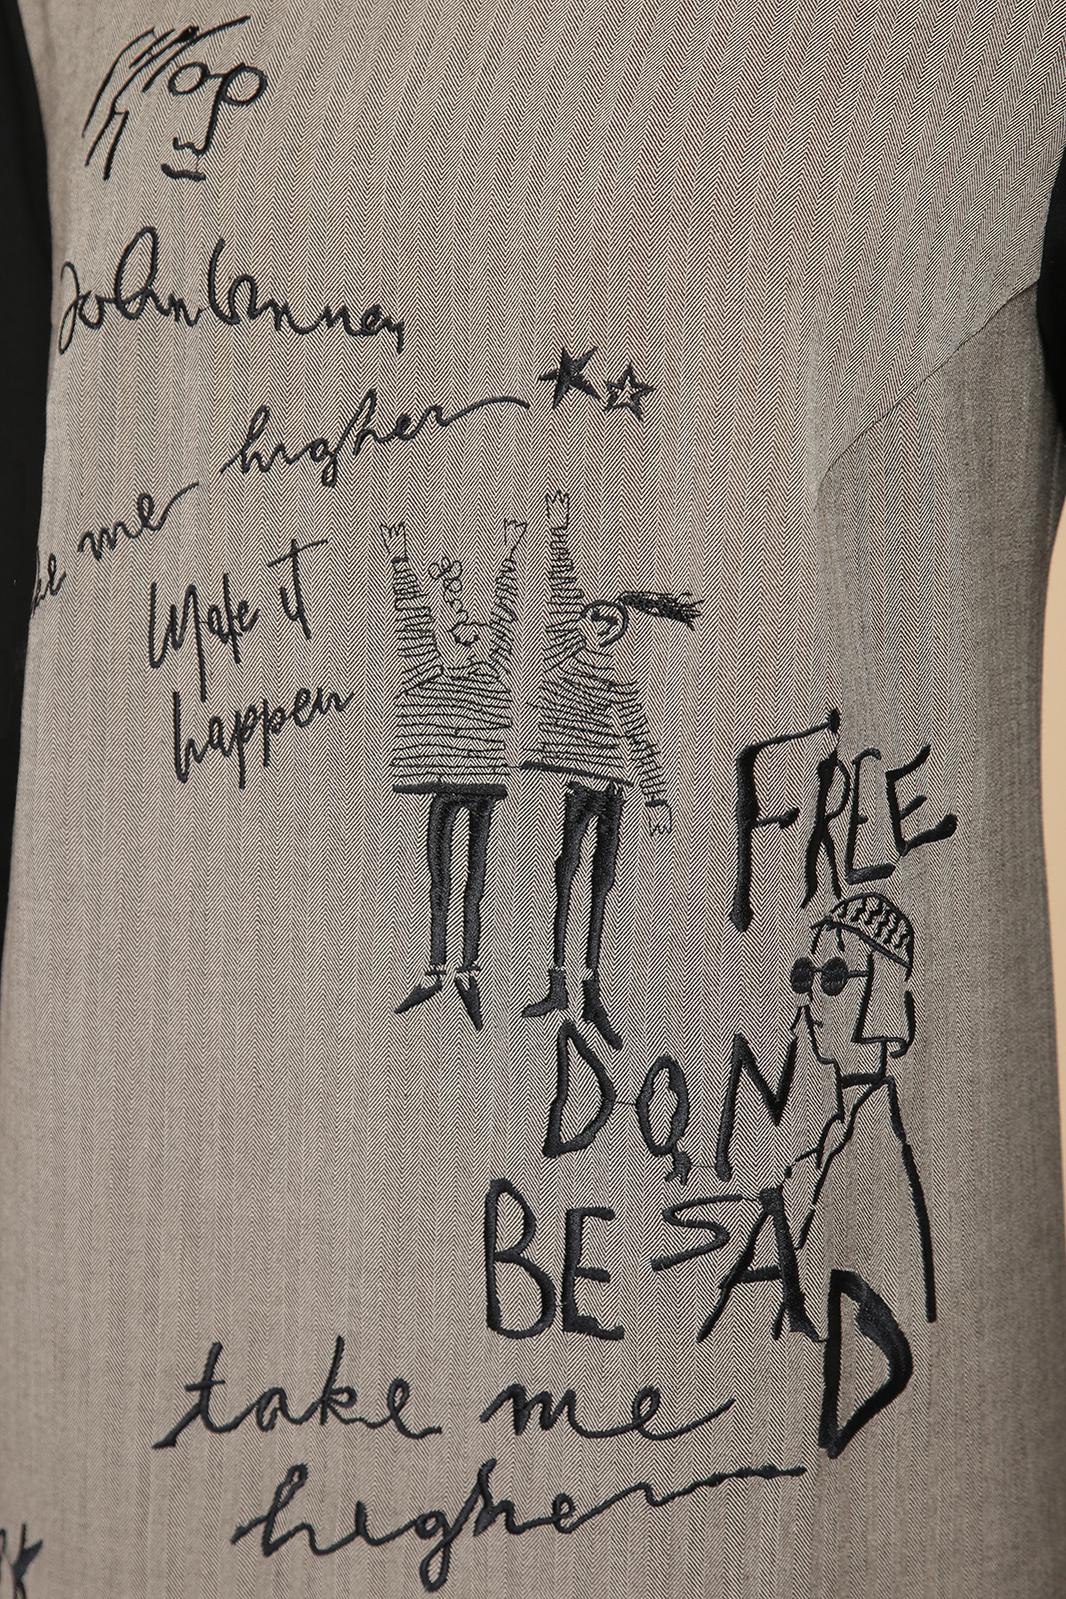 me higher
Make it
happen
FREE
DON
BE SAD
take me
higher